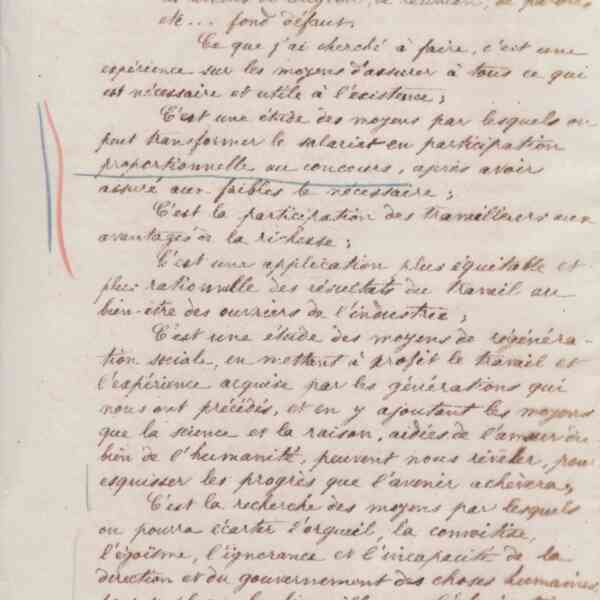 etc... fond défaut.
Ce que j'ai cherché à faire, c'est une
expérience sur les moyens d'assurer à tous ce qui
est nécessaire et utile à l'existence ;
C'est une étude des moyens par lesquels on
peut transformer le salariat en participation
proportionnelle au concours, après avoir
assuré aux faibles le nécessaire ;
C'est la participation des travailleurs aux
avantages de la richesse ;
C'est une application plus équitable et
plus rationnelle des résultats du travail au
bien-être des ouvriers de l'industrie ;
C'est une étude des moyens de régénéra-
tion sociale, en mettant à profit le travail et
l'expérience acquise par les générations qui
nous ont précédés, et en y ajoutant les moyens
que la science et la raison, aidées de l'amour du
bien de l'humanité, peuvent nous révéler, pour
esquisser les progrès que l'avenir achèvera ;
C'est la recherche des moyens par lesquels
on pourra écarter l'orgueil, la convoitise,
l'égoïsme, l'ignorance et l'incapacité de la
direction et du gouvernement des choses humaines